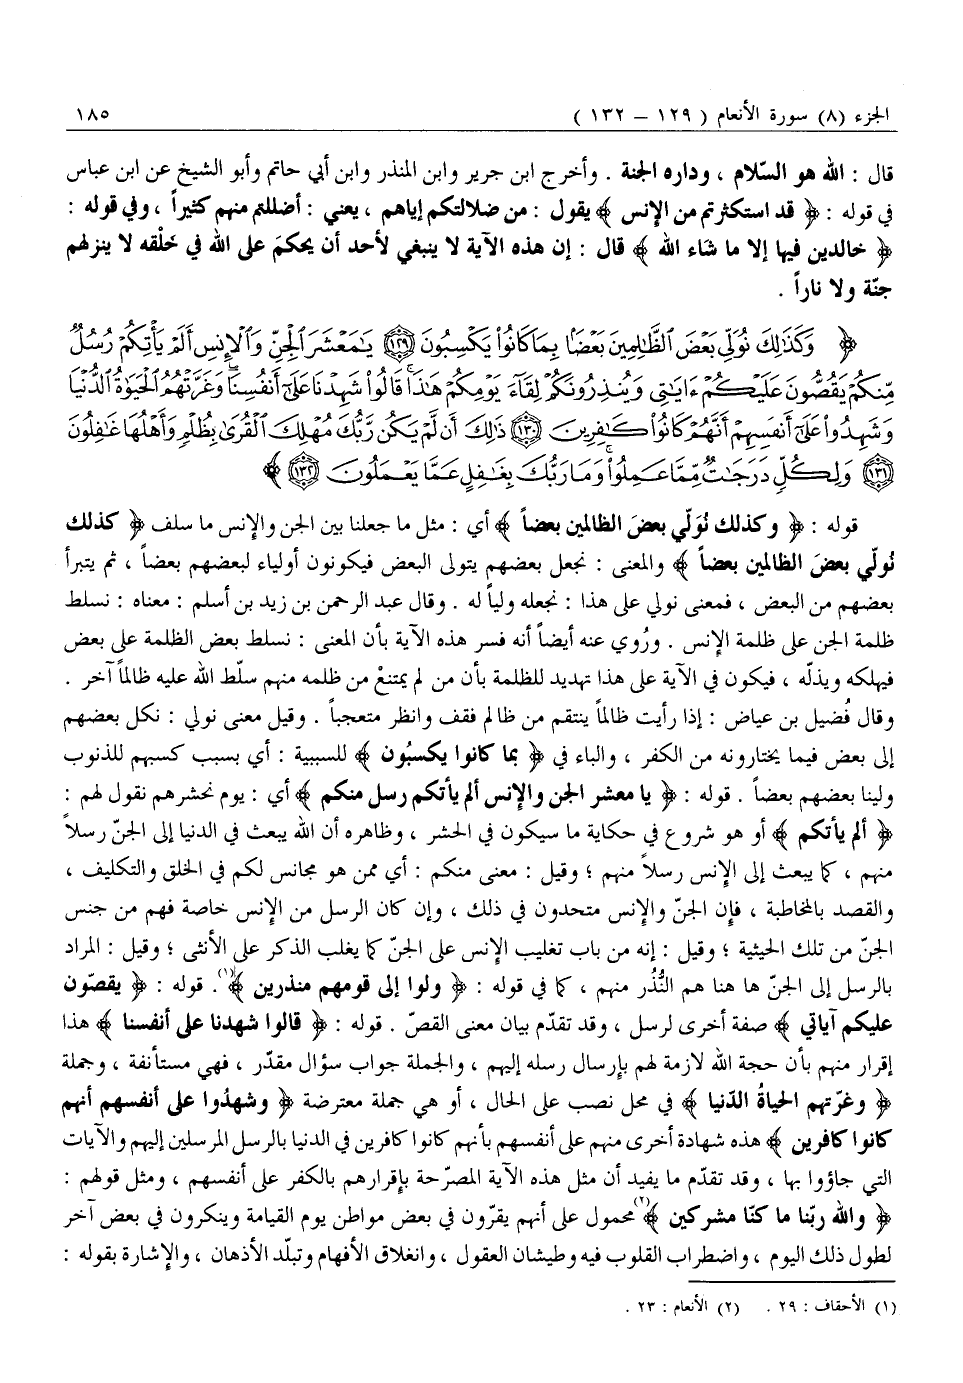 الجزء (٨) سورة الأنعام ( ١٢٩ – ١٣٢ ) ١٨٥
قال : الله هو السّلام ، وداره الجنة . وأخرج ابن جرير وابن المنذر وابن أبي حاتم وأبو الشيخ عن ابن عباس
في قوله : ﴿ قد استكثرتم من الإنس ﴾ يقول : من ضلالتكم إياهم ، يعني : أضللتم منهم كثيراً ، وفي قوله :
﴿ خالدين فيها إلا ما شاء الله ﴾ قال : إن هذه الآية لا ينبغي لأحد أن يحكمَ على الله في خَلْقه لا ينزلهم
جنّة ولا ناراً .
﴿ وَكَذَٰلِكَ نُوَلِّي بَعْضَ ٱلظَّٰلِمِينَ بَعْضًۢا بِمَا كَانُوا۟ يَكْسِبُونَ ١٢٩ يَٰمَعْشَرَ ٱلْجِنِّ وَٱلْإِنسِ أَلَمْ يَأْتِكُمْ رُسُلٌ
مِّنكُمْ يَقُصُّونَ عَلَيْكُمْ ءَايَٰتِي وَيُنذِرُونَكُمْ لِقَآءَ يَوْمِكُمْ هَٰذَا ۚ قَالُوا۟ شَهِدْنَا عَلَىٰٓ أَنفُسِنَا ۖ وَغَرَّتْهُمُ ٱلْحَيَوٰةُ ٱلدُّنْيَا
وَشَهِدُوا۟ عَلَىٰٓ أَنفُسِهِمْ أَنَّهُمْ كَانُوا۟ كَٰفِرِينَ ١٣٠ ذَٰلِكَ أَن لَّمْ يَكُن رَّبُّكَ مُهْلِكَ ٱلْقُرَىٰ بِظُلْمٍ وَأَهْلُهَا غَٰفِلُونَ
١٣١ وَلِكُلٍّ دَرَجَٰتٌ مِّمَّا عَمِلُوا۟ ۚ وَمَا رَبُّكَ بِغَٰفِلٍ عَمَّا يَعْمَلُونَ ١٣٢ ﴾
قوله : ﴿ وكذلك نُوَلّي بعضَ الظالمين بعضاً ﴾ أي : مثل ما جعلنا بين الجن والإنس ما سلف ﴿ كذلك
نُولّي بعضَ الظالمين بعضاً ﴾ والمعنى : نجعل بعضهم يتولى البعض فيكونون أولياء لبعضهم بعضاً ، ثم يتبرأ
بعضهم من البعض ، فمعنى نولي على هذا : نجعله ولياً له . وقال عبد الرحمن بن زيد بن أسلم : معناه : نسلط
ظلمة الجن على ظلمة الإنس . ورُوي عنه أيضاً أنه فسر هذه الآية بأن المعنى : نسلط بعض الظلمة على بعض
فيهلكه ويذلّه ، فيكون في الآية على هذا تهديد للظلمة بأن من لم يمتنعْ من ظلمه منهم سلّط الله عليه ظالماً آخر .
وقال فُضيل بن عياض : إذا رأيت ظالماً ينتقم من ظالم فقف وانظر متعجباً . وقيل معنى نولي : نكل بعضهم
إلى بعض فيما يختارونه من الكفر ، والباء في ﴿ بما كانوا يكسبُون ﴾ للسببية : أي بسبب كسبهم للذنوب
ولينا بعضهم بعضاً . قوله : ﴿ يا معشر الجن والإنس ألم يأتكم رسل منكم ﴾ أي : يوم نحشرهم نقول لهم :
﴿ ألم يأتكم ﴾ أو هو شروع في حكاية ما سيكون في الحشر ، وظاهره أن الله يبعث في الدنيا إلى الجنّ رسلاً
منهم ، كما يبعث إلى الإنس رسلاً منهم ؛ وقيل : معنى منكم : أي ممن هو مجانس لكم في الخلق والتكليف ،
والقصد بالمخاطبة ، فإن الجنّ والإنس متحدون في ذلك ، وإن كان الرسل من الإنس خاصة فهم من جنس
الجنّ من تلك الحيثية ؛ وقيل : إنه من باب تغليب الإنس على الجنّ كما يغلب الذكر على الأنثى ؛ وقيل : المراد
بالرسل إلى الجنّ ها هنا هم النُّذُر منهم ، كما في قوله : ﴿ ولوا إلى قومهم منذرين ﴾(١). قوله : ﴿ يقصّون
عليكم آياتي ﴾ صفة أخرى لرسل ، وقد تقدّم بيان معنى القصّ . قوله : ﴿ قالوا شهدنا على أنفسنا ﴾ هذا
إقرار منهم بأن حجة الله لازمة لهم بإرسال رسله إليهم ، والجملة جواب سؤال مقدّر ، فهي مستأنفة ، وجملة
﴿ وغرّتهم الحياةُ الدّنيا ﴾ في محل نصب على الحال ، أو هي جملة معترضة ﴿ وشهدُوا على أنفسهم أنهم
كانوا كافرين ﴾ هذه شهادة أخرى منهم على أنفسهم بأنهم كانوا كافرين في الدنيا بالرسل المرسلين إليهم والآيات
التي جاؤوا بها ، وقد تقدّم ما يفيد أن مثل هذه الآية المصرّحة بإقرارهم بالكفر على أنفسهم ، ومثل قولهم :
﴿ والله ربّنا ما كنّا مشركين ﴾(٢) محمول على أنهم يقرّون في بعض مواطن يوم القيامة وينكرون في بعض آخر
لطول ذلك اليوم ، واضطراب القلوب فيه وطيشان العقول ، وانغلاق الأفهام وتبلّد الأذهان ، والإشارة بقوله :
(١) الأحقاف : ٢٩ . (٢) الأنعام : ٢٣ .